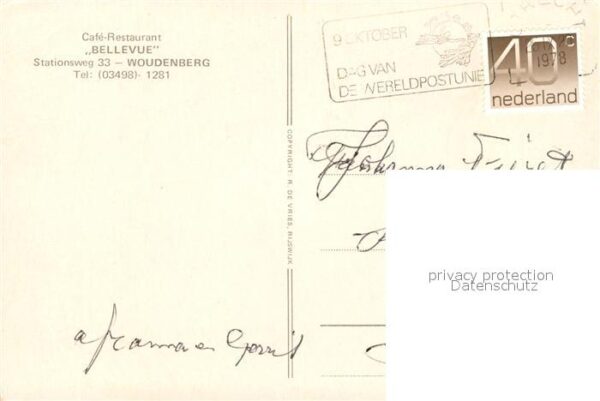 Café-Restaurant
„BELLEVUE"
Stationsweg 33 — WOUDENBERG
Tel: (03498)- 1281
9 OKTOBER
DAG VAN
DE WERELDPOSTUNIE
1978
40c
nederland
COPYRIGHT: R. DE VRIES, RIJSWIJK
privacy protection
Datenschutz
en Gerrit